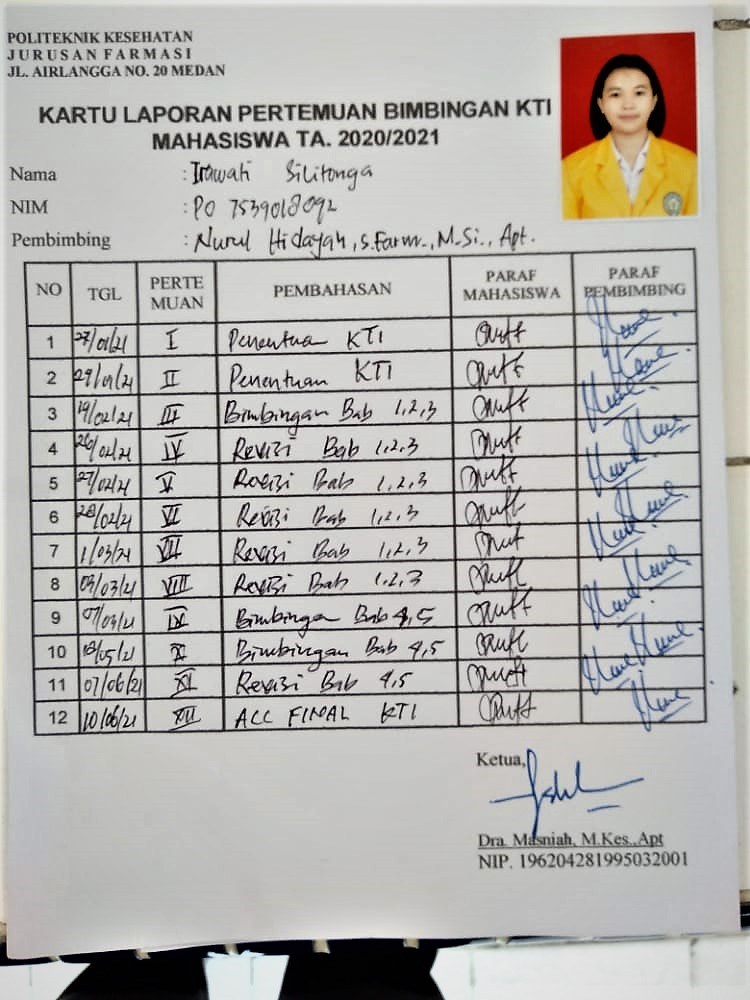 POLITEKNIK KESEHATAN
JURUSAN FARMASI
JL. AIRLANGGA NO. 20 MEDAN
KARTU LAPORAN PERTEMUAN BIMBINGAN KTI
MAHASISWA TA. 2020/2021
Nama : Irawati Silitonga
NIM : PO 7539018092
Pembimbing : Nurul Hidayah, S.Farm., M.Si., Apt.
NO TGL PERTE MUAN PEMBAHASAN PARAF MAHASISWA PARAF PEMBIMBING
1 27/01/21 I Penentua KTI
2 29/01/21 II Penentuan KTI
3 19/02/21 III Bimbingan Bab 1,2,3
4 26/02/21 IV Revisi Bab 1,2,3
5 27/02/21 V Revisi Bab 1,2,3
6 28/02/21 VI Revisi Bab 1,2,3
7 1/03/21 VII Revisi Bab 1,2,3
8 03/03/21 VIII Revisi Bab 1,2,3
9 IX Bimbingan Bab 4,5
10 18/05/21 X Bimbingan Bab 4,5
11 07/06/21 XI Revisi Bab 4,5
12 10/06/21 XII ACC FINAL KTI
Ketua,
Dra. Masniah, M.Kes.,Apt
NIP. 196204281995032001